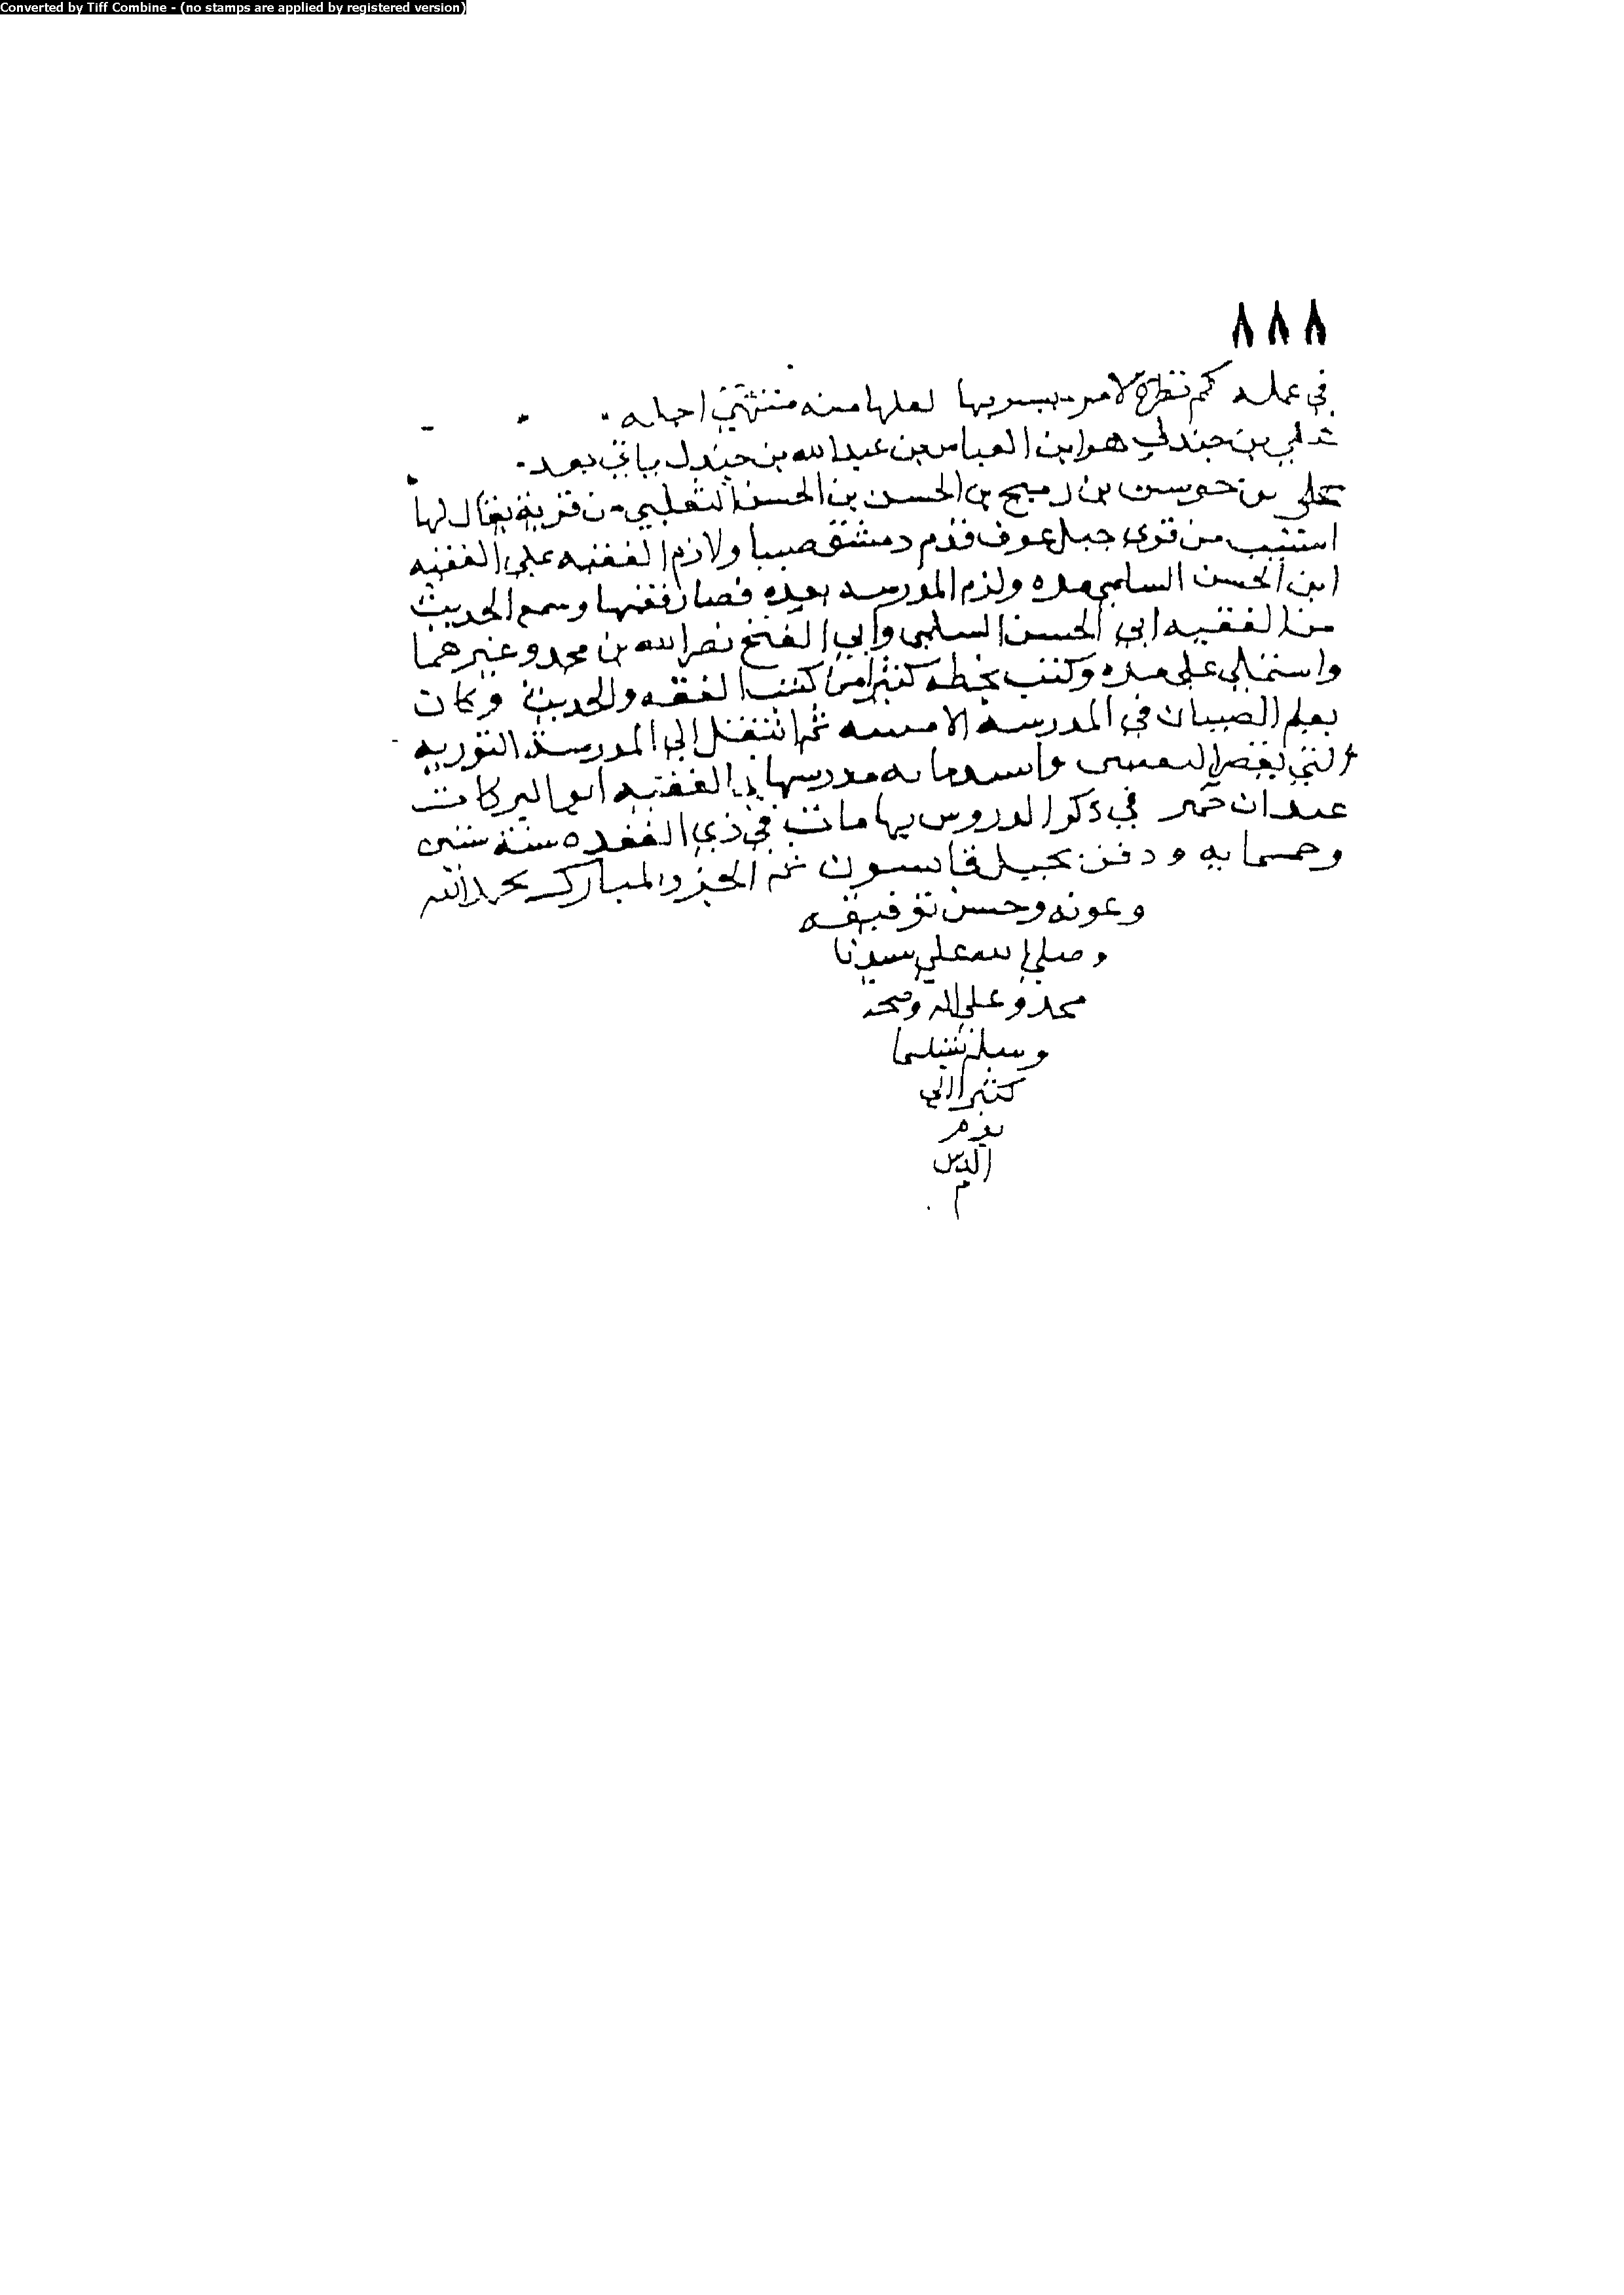 Converted by Tiff Combine - (no stamps are applied by registered version)
٨٨٨
في عمله كم نظرة لامر يسر بها لعلها منه منتهي اجله
علي بن جندل هو ابن العباس بن عبد الله بن جندل ياتي بعد
علي بن حوسن بن رميح بن الحسن بن الحسن الثعلبي من قرية يقال لها
استبب من قري جبل عوف قدم دمشق صبيا ولازم الفقيه علي الفقيه
ابن الحسن السلمي مده ولزم المدرسه بعده فصار فقيها وسمع الحديث
من الفقيه ابي الحسن السلمي وابي الفتح نصر الله بن محمد وغيرهما
واستملي علي مده وكتب بخطه كثيرا من كتب الفقه والحديث وكان
يعلم الصبيان في المدرسة الامينيه ثم انتقل الي المدرسة النوريه
التي بقصر واستنابه مدرسها الفقيه ابو البركات
عبد ان في ذكر الدروس بها مات في ذي القعده سنة ستين
وخمسمايه ودفن بجبل قاسيون تم الجزو المبارك بحمد الله
وعونه وحسن توفيقه
وصلي الله علي سيدنا
محمد وعلي اله وصحبه
وسلم تسليما
كثيرا الي
يوم
الدين
م